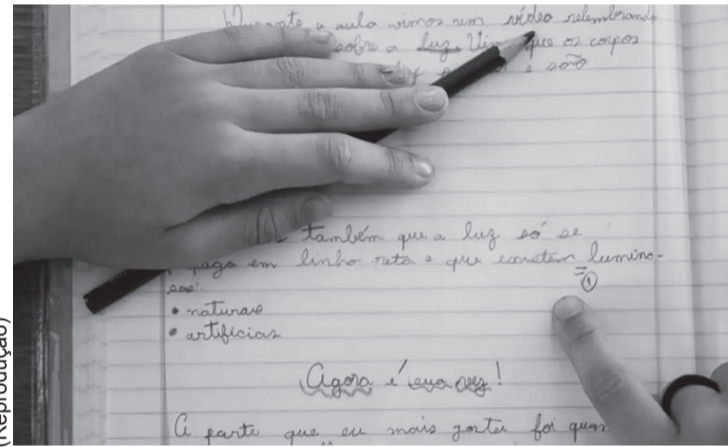 Durante a aula vimos um vídeo relembrando
sobre a luz. Vimos que os corpos
e são
também que a luz só se
propaga em linha reta e que existem lumino-
sos:
= ①
• naturais
• artificias
Agora é sua vez!
A parte que eu mais gostei foi quan
(Reprodução)